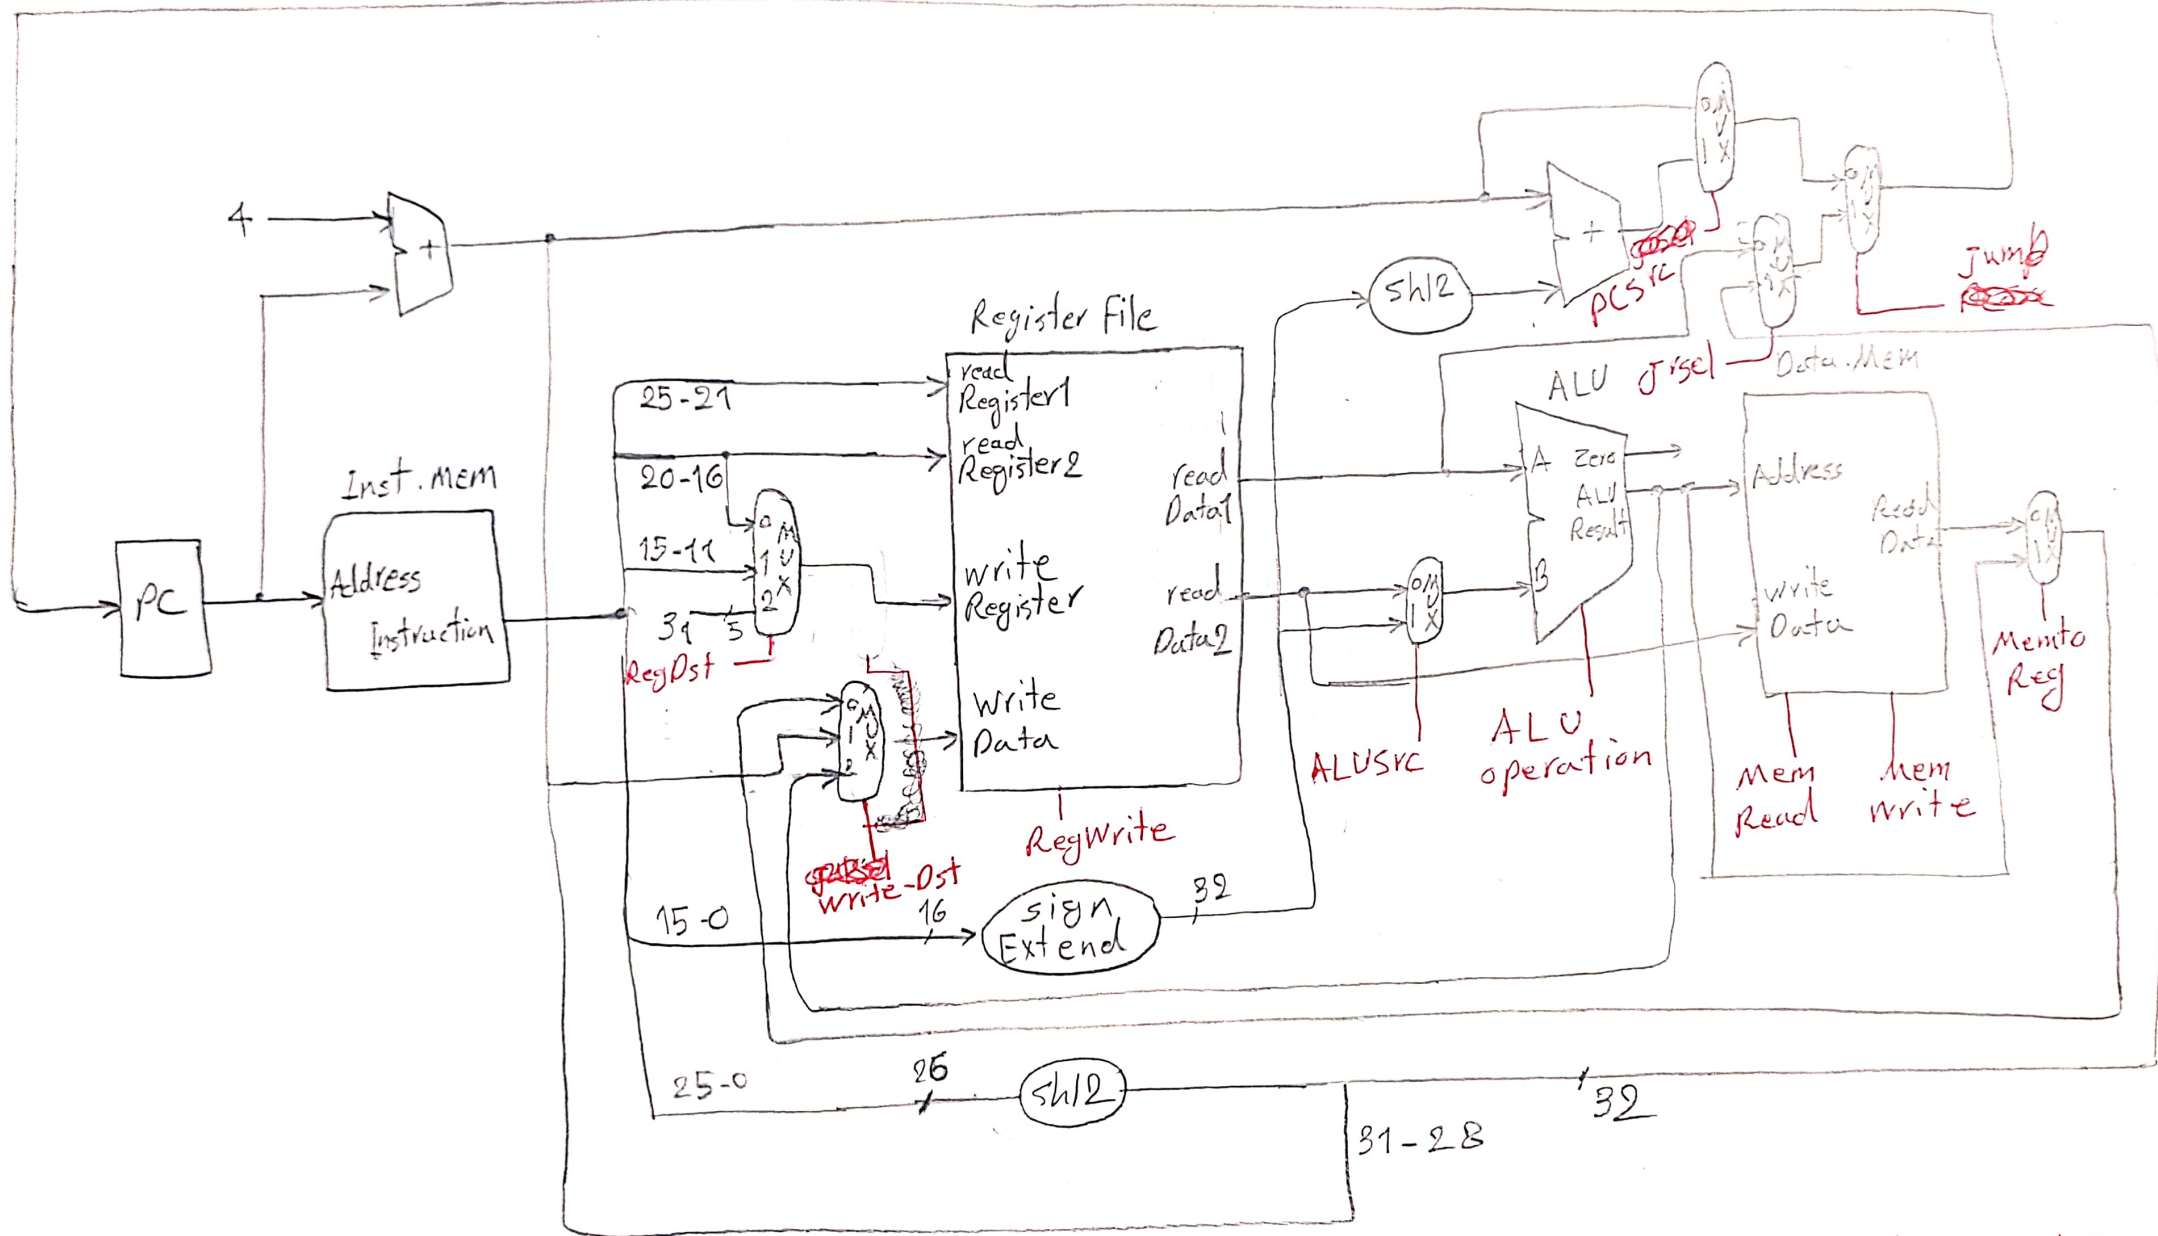 4
+
PC
Inst.Mem
Address
Instruction
25-21
20-16
15-11
31
5
0 M
1 U
2 X
RegDst
Register File
read
Register1
read
Register2
write
Register
write
Data
read
Data1
read
Data2
RegWrite
0 M
1 U
X
write-Dst
15-0
16
sign
Extend
32
25-0
26
shl2
31-28
32
shl2
+
0 M
U
1 X
PCSrc
0 M
U
1 X
Jrsel
0 M
U
1 X
Jump
ALU
A
B
Zero
ALU
Result
0 M
U
1 X
ALUSrc
ALU
operation
Data.Mem
Address
Read
Data
write
Data
Mem
Read
Mem
write
0 M
U
1 X
Memto
Reg